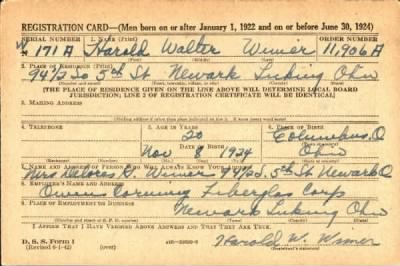 REGISTRATION CARD—(Men born on or after January 1, 1922 and on or before June 30, 1924)
SERIAL NUMBER 1. NAME (Print) ORDER NUMBER
W 171 A Harold Walter Wimer 11,906 A
2. PLACE OF RESIDENCE (Print)
94½ So 5th St Newark Licking Ohio
(THE PLACE OF RESIDENCE GIVEN ON THE LINE ABOVE WILL DETERMINE LOCAL BOARD
JURISDICTION; LINE 2 OF REGISTRATION CERTIFICATE WILL BE IDENTICAL)
3. MAILING ADDRESS
4. TELEPHONE 5. AGE IN YEARS 6. PLACE OF BIRTH
20 Columbus, O
DATE OF BIRTH
Nov 8 1924
7. NAME AND ADDRESS OF PERSON WHO WILL ALWAYS KNOW YOUR ADDRESS
Mrs Delores G. Wimer 94½ S. 5th St Newark O
8. EMPLOYER'S NAME AND ADDRESS
Owens Corning Fiberglas Corp
9. PLACE OF EMPLOYMENT OR BUSINESS
Newark Licking Ohio
I AFFIRM THAT I HAVE VERIFIED ABOVE ANSWERS AND THAT THEY ARE TRUE.
D. S. S. Form 1
(Revised 6-1-42) (over)
Harold W. Wimer